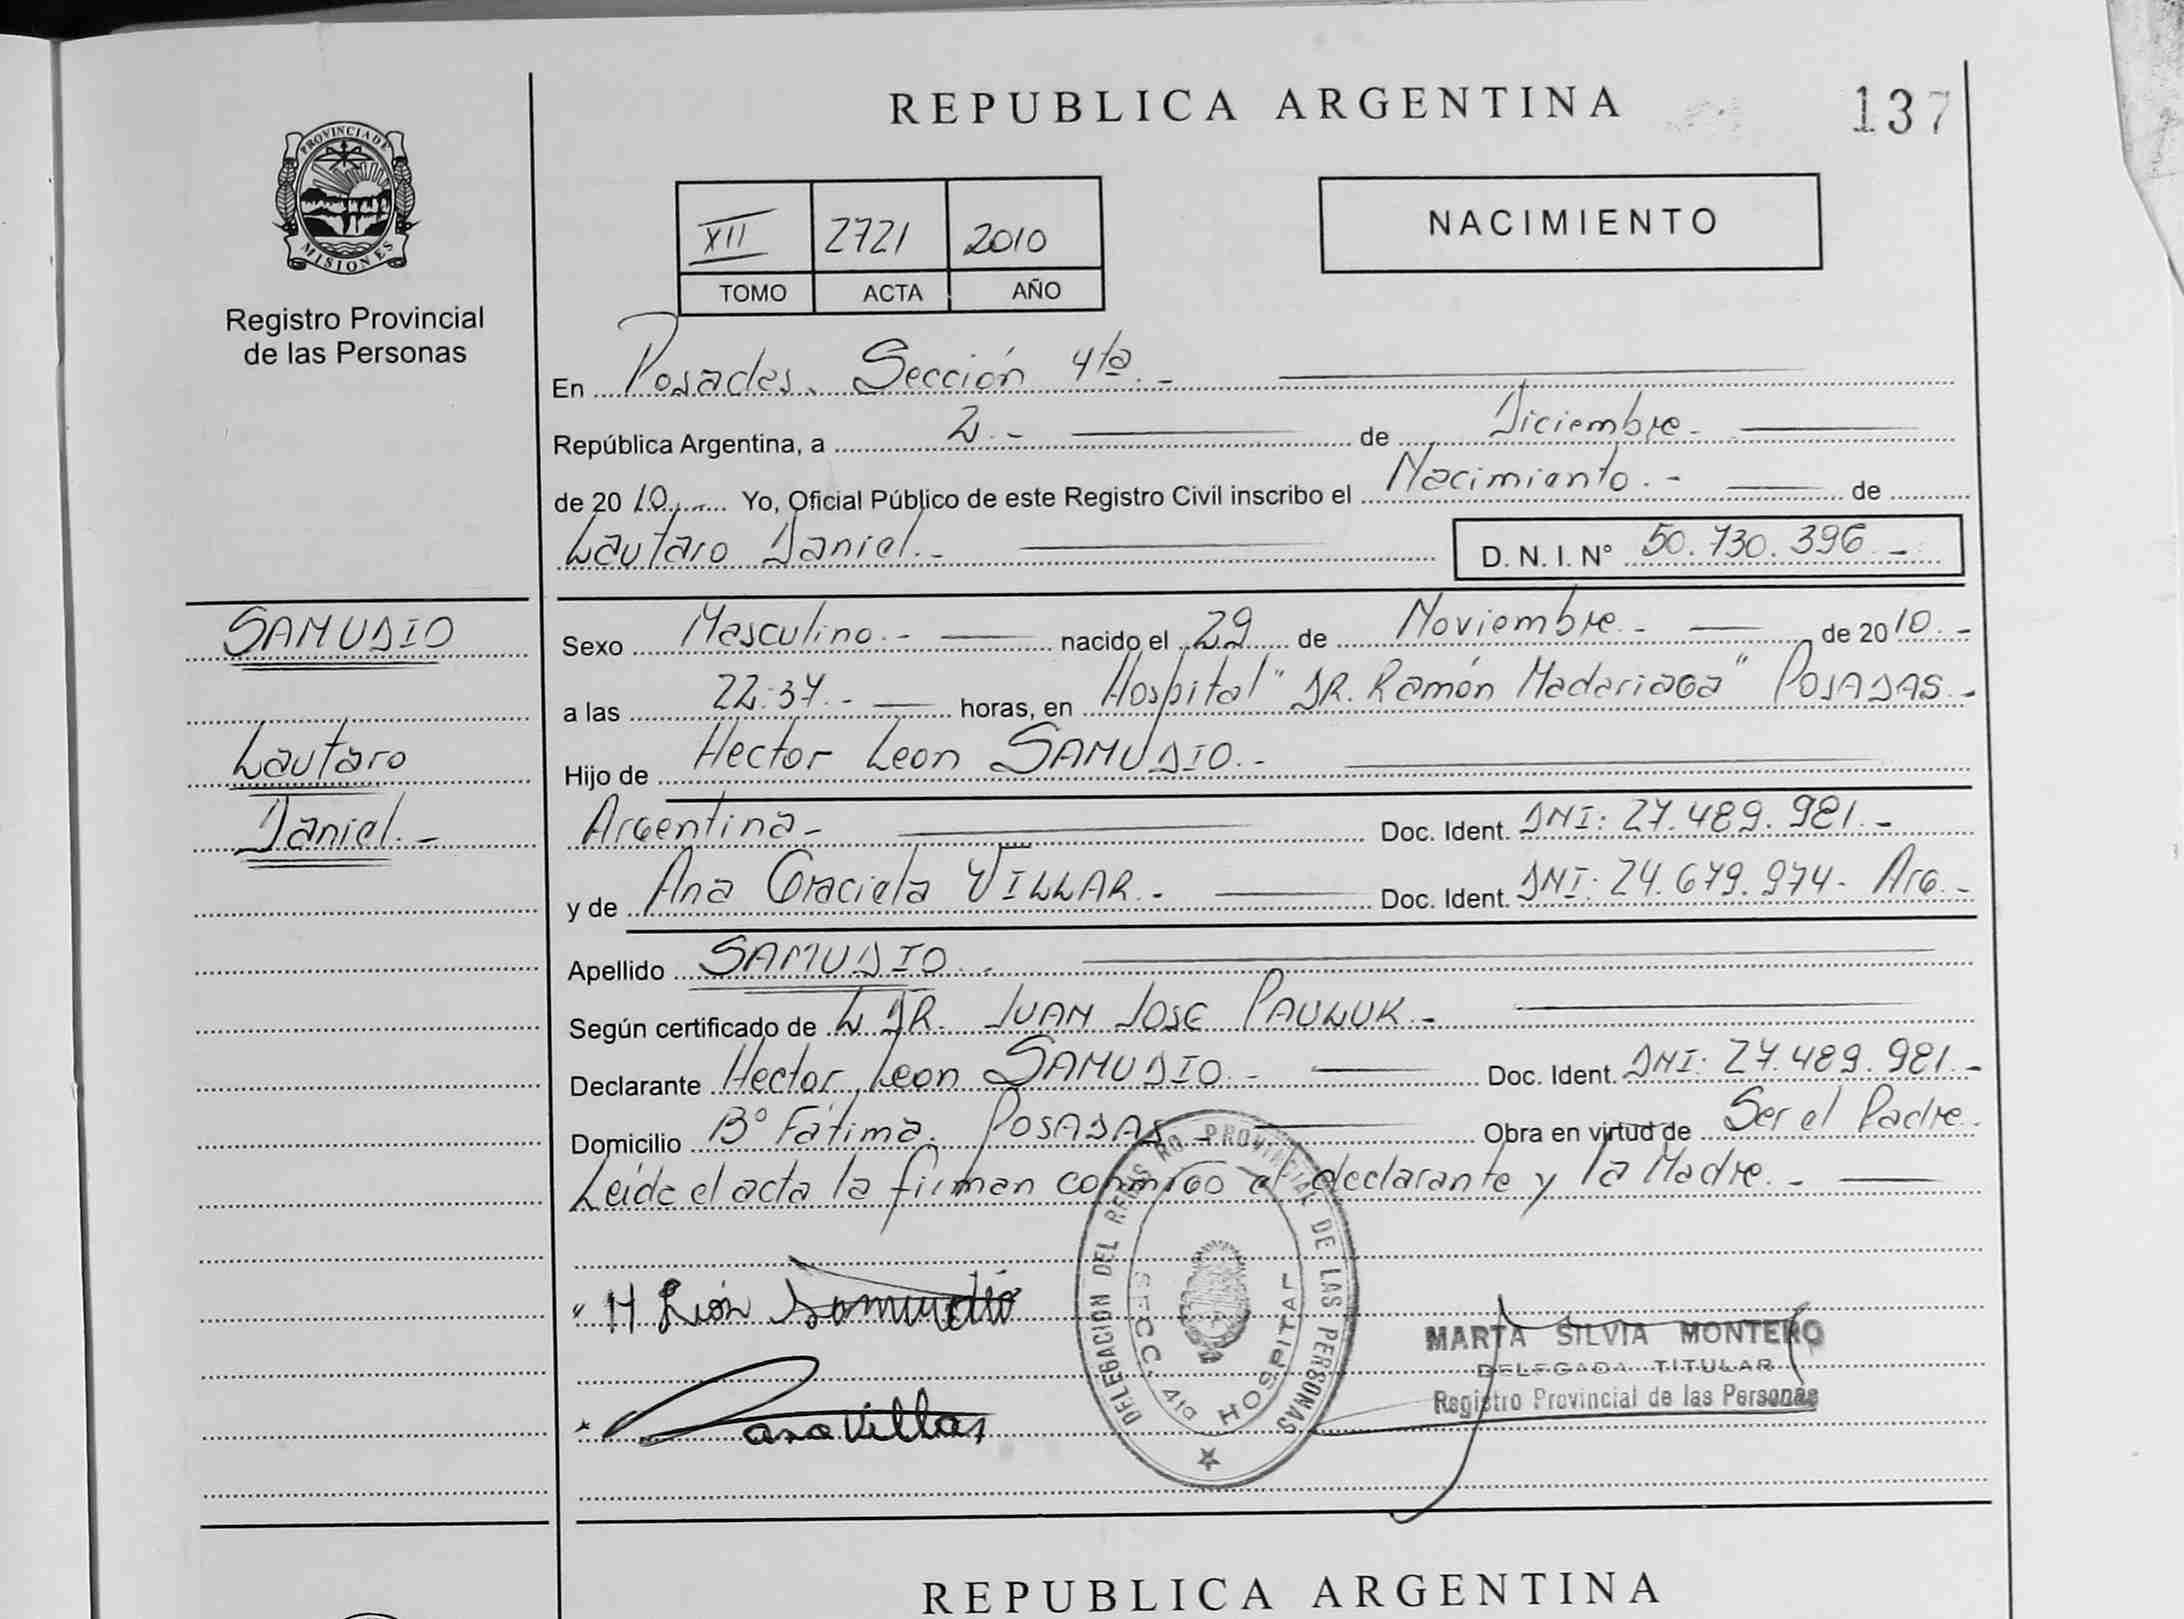 REPUBLICA ARGENTINA
137
PROVINCIA DE
MISIONES
Registro Provincial
de las Personas
XII 2721 2010
TOMO ACTA AÑO
NACIMIENTO
En Posadas. Sección 4ta.-
República Argentina, a 2.- de Diciembre.-
de 2010 Yo, Oficial Público de este Registro Civil inscribo el Nacimiento.- de
Lautaro Daniel.- D. N. I. N° 50.730.396.-
SAMUDIO
Lautaro
Daniel.-
Sexo Masculino.- nacido el 29 de Noviembre.- de 2010.-
a las 22:37.- horas, en Hospital "DR. Ramón Madariaga" POSADAS.-
Hijo de Hector Leon SAMUDIO.-
Argentina- Doc. Ident. DNI: 27.489.981.-
y de Ana Graciela VILLAR.- Doc. Ident. DNI: 24.679.974- Arg.-
Apellido SAMUDIO.-
Según certificado de L DR. JUAN JOSE PAULUK.-
Declarante Hector Leon SAMUDIO.- Doc. Ident. DNI: 27.489.981.-
Domicilio B° Fátima. POSADAS.- Obra en virtud de Ser el Padre.
Leida el acta la firman conmigo el declarante y la Madre.-
H León Samudio
DELEGACION DEL REGISTRO PROVINCIAL DE LAS PERSONAS
SECC. 4ta HOSPITAL
MARTA SILVIA MONTERO
DELEGADA TITULAR
Registro Provincial de las Personas
REPUBLICA ARGENTINA